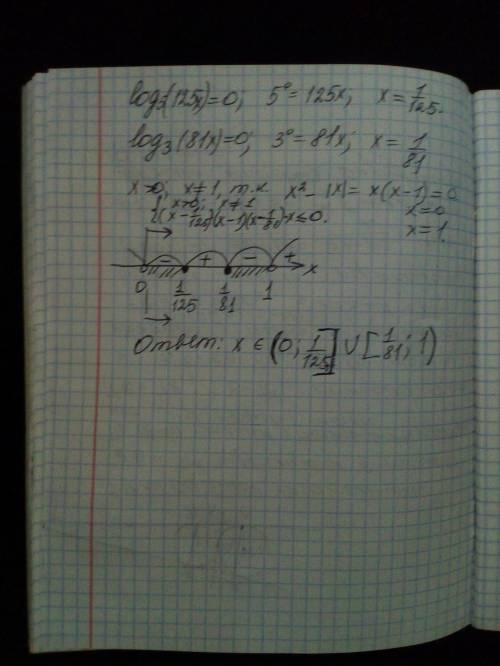 log₅(125x)=0; 5⁰=125x; x=1/125.
log₃(81x)=0; 3⁰=81x; x=1/81
x>0, x≠1, т.к x²-|x|=x(x-1)=0
{ x>0; x≠1 x=0
{(x-1/125)(x-1)(x-1/81)·x≤0. x=1.
- + - + x
0 1/125 1/81 1
Ответ: x ∈ (0; 1/125] ∪ [1/81; 1)